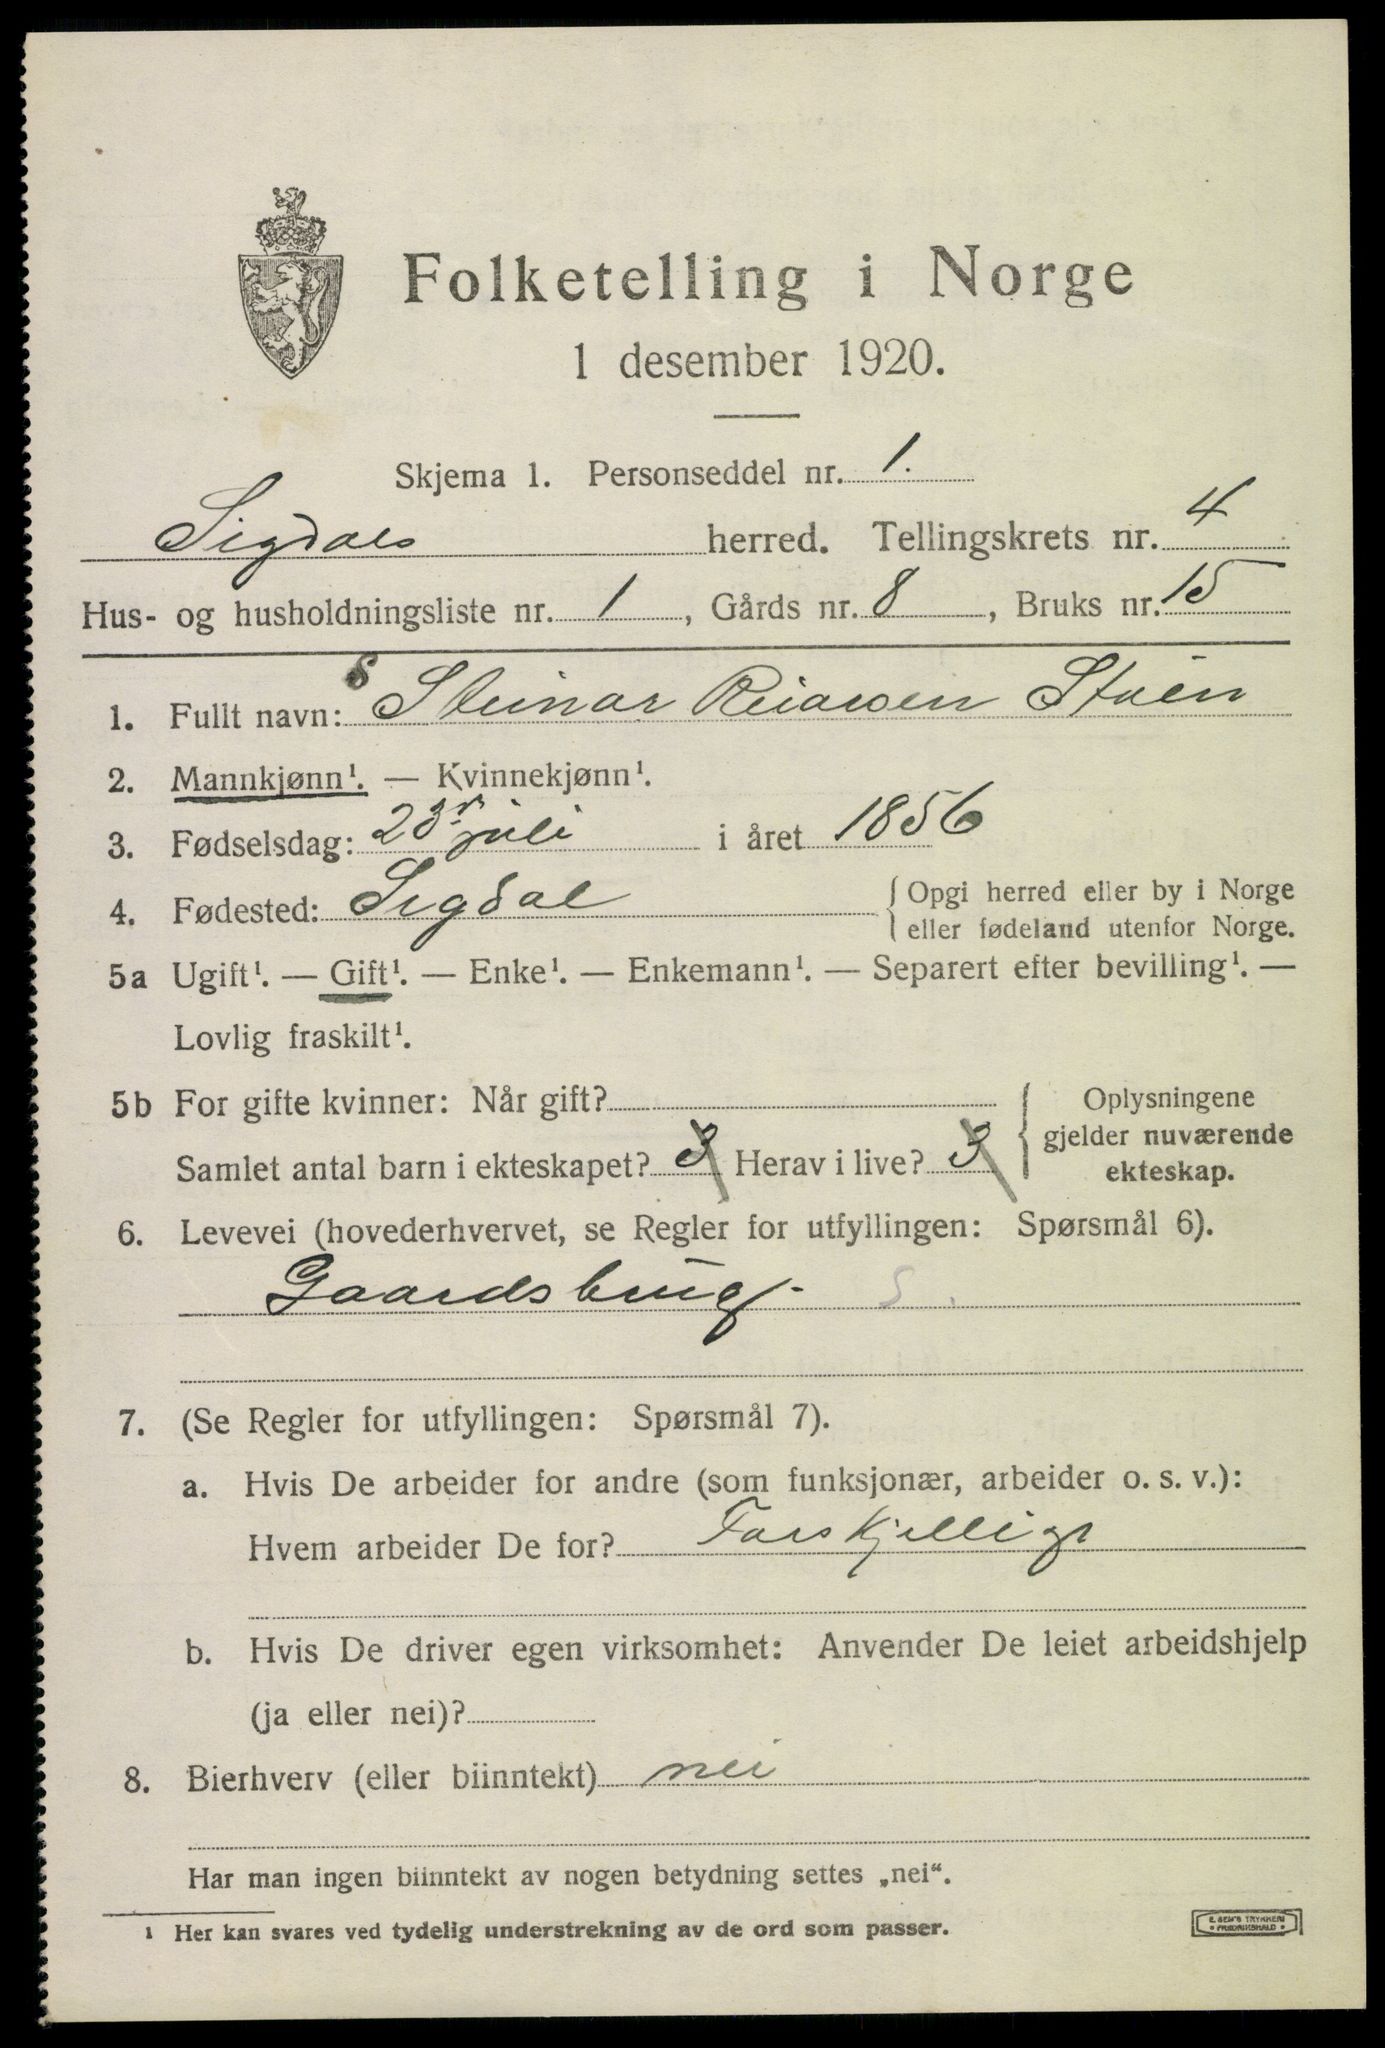 Folketelling i Norge
1 desember 1920.
Skjema 1. Personseddel nr. 1.
Sigdals herred. Tellingskrets nr. 4
Hus- og husholdningsliste nr. 1, Gårds nr. 8, Bruks nr. 15
S
1. Fullt navn: Steinar Reiarsen Støen
2. Mannkjønn¹. — Kvinnekjønn¹.
3. Fødselsdag: 23 juli i året 1856
4. Fødested: Sigdal { Opgi herred eller by i Norge
eller fødeland utenfor Norge.
5a Ugift¹. — Gift¹. — Enke¹. — Enkemann¹. — Separert efter bevilling¹. —
Lovlig fraskilt¹.
5b For gifte kvinner: Når gift?
Samlet antal barn i ekteskapet? 3 Herav i live? 3
{ Oplysningene
gjelder nuværende
ekteskap.
6. Levevei (hovederhvervet, se Regler for utfyllingen: Spørsmål 6).
Gaardsbrug. S.
7. (Se Regler for utfyllingen: Spørsmål 7).
a. Hvis De arbeider for andre (som funksjonær, arbeider o. s. v.):
Hvem arbeider De for? Forskjellige
b. Hvis De driver egen virksomhet: Anvender De leiet arbeidshjelp
(ja eller nei)?
8. Bierhverv (eller biinntekt) nei
Har man ingen biinntekt av nogen betydning settes „nei“.
¹ Her kan svares ved tydelig understrekning av de ord som passer.
E. SEM'S TRYKKERI
• FREDRIKSHALD •